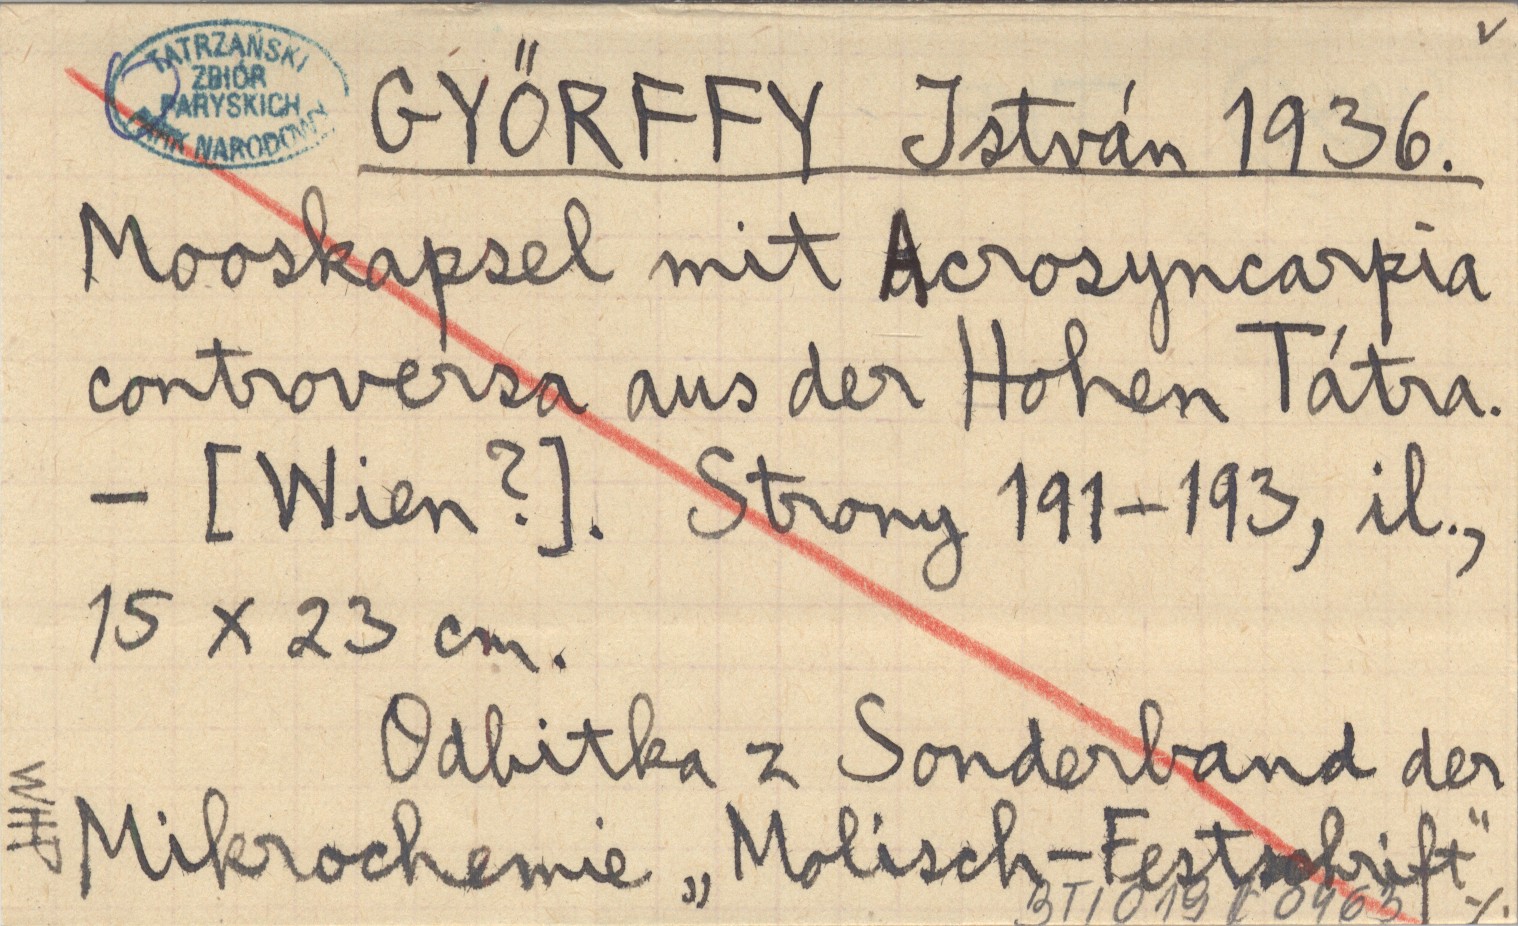 TATRZAŃSKI
ZBIÓR
PARYSKICH
PARK NARODOWY
GYŐRFFY István 1936.
Mooskapsel mit Acrosyncarpia
controversa aus der Hohen Tátra.
– [Wien?]. Strony 191–193, il.,
15 x 23 cm.
Odbitka z Sonderband der
Mikrochemie „Molisch–Festschrift"
WHP